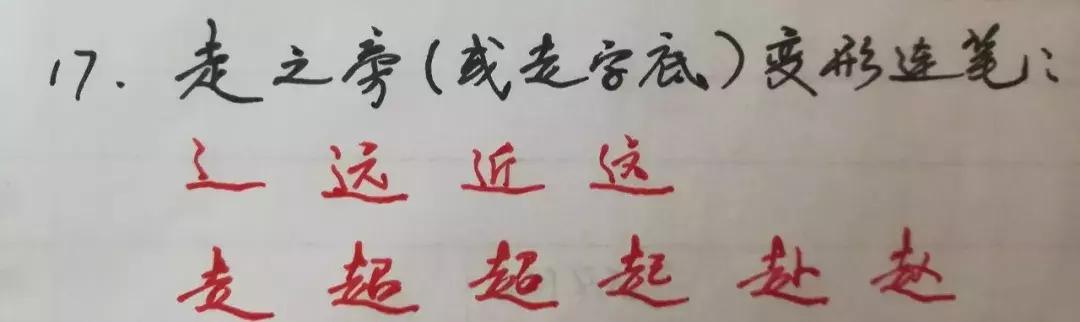 17. 走之旁(或走字底)变形连笔:
辶 远 近 这
走 超 超 起 赴 赵